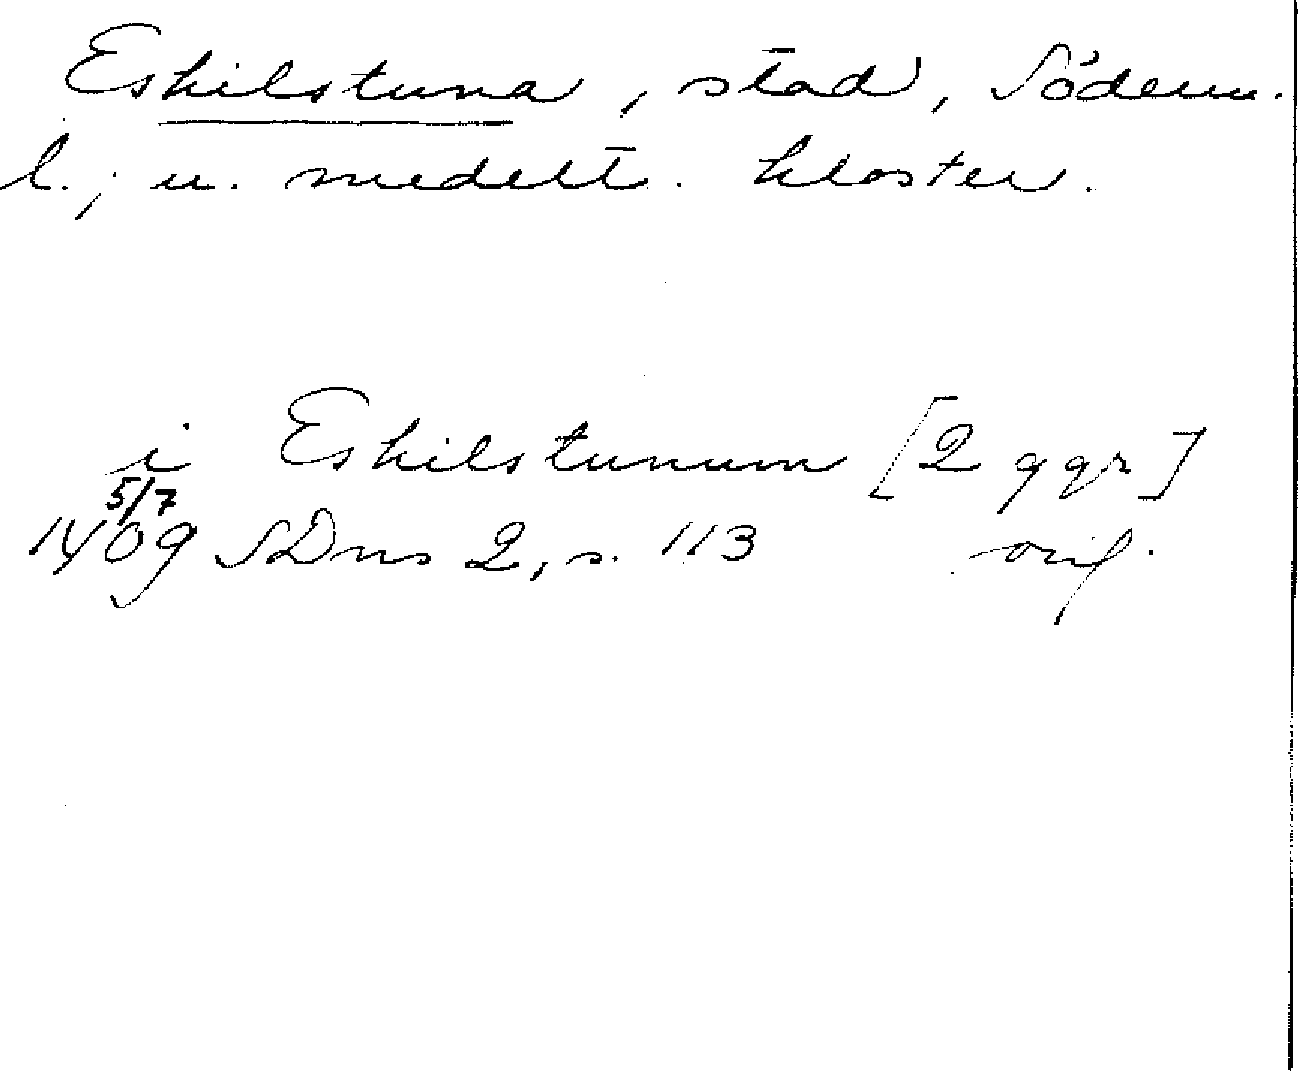 Eskilstuna, stad, Söderm.
l.; u. medelt. kloster.
i Eskilstunum [2 ggr]
5/7
1409 SDns 2, s. 113 orig.